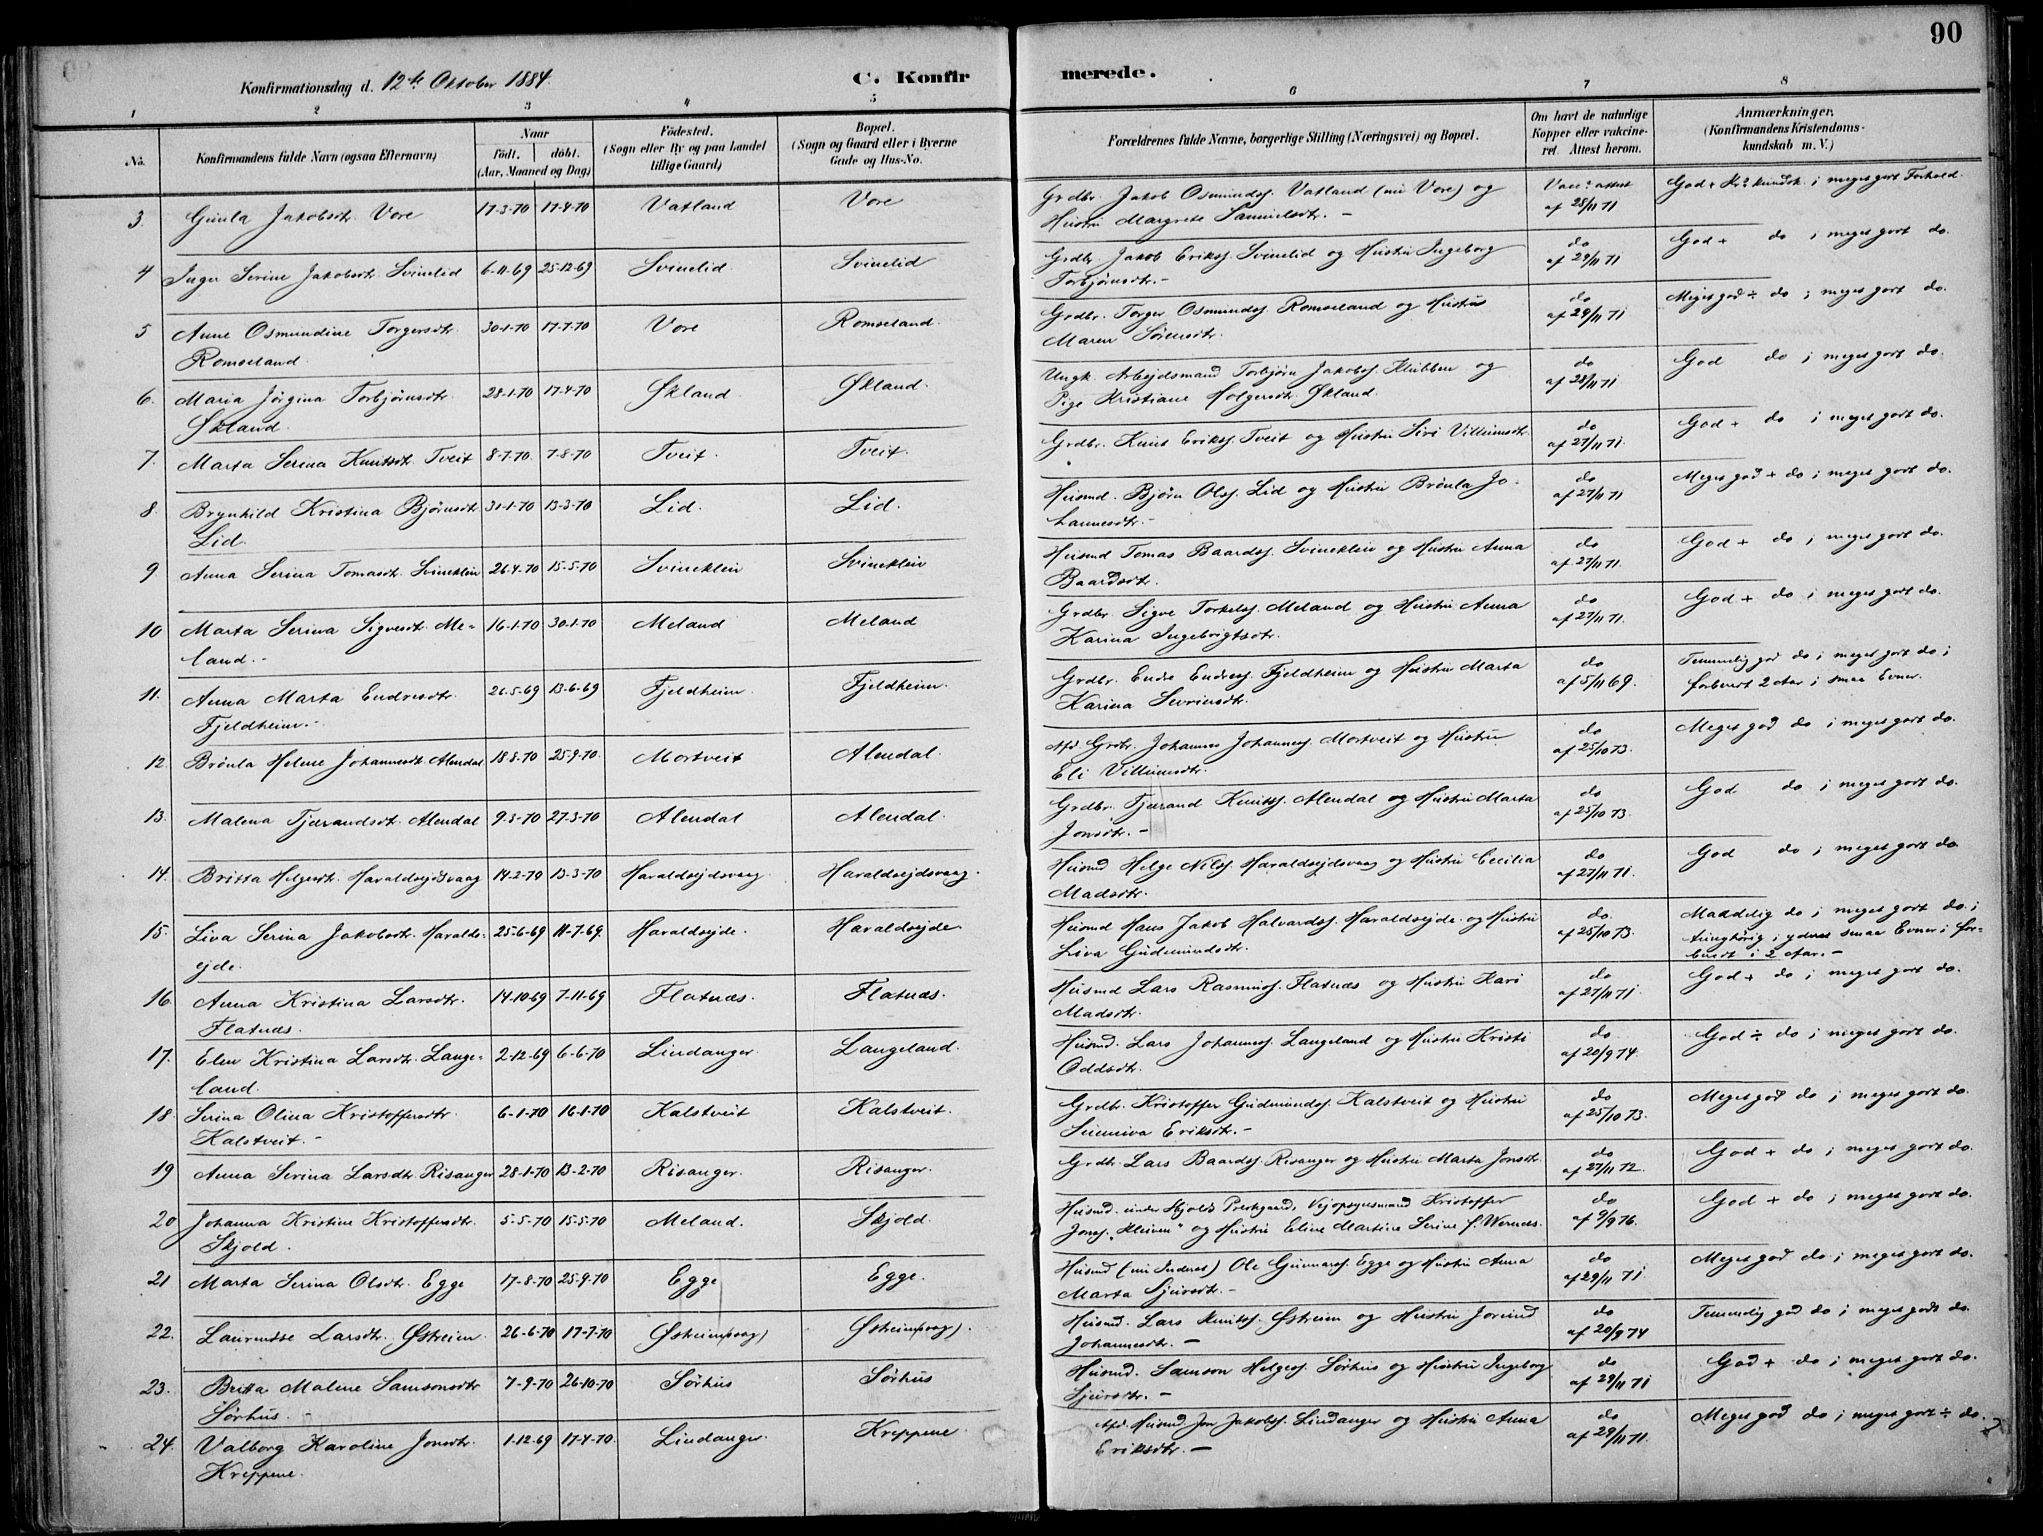 90
Konfirmationsdag d. 12te Oktober 1884.
C. Konfirmerede.
1 2 3 4 5 6 7 8
No. Konfirmandens fulde Navn (ogsaa Efternavn) Naar født. døbt. (Aar, Maaned og Dag) Fødested. (Sogn eller By og paa Landet tillige Gaard) Bopæl. (Sogn og Gaard eller i Byerne Gade og Hus-No. Forældrenes fulde Navne, borgerlige Stilling (Næringsvei) og Bopæl. Om havt de naturlige Kopper eller vaccineret. Attest herom. Anmærkninger. (Konfirmandens Kristendomskundskab m. V.)
3. Gunla Jakobsdtr. Vore 17-3-70 17-4-70 Vatland Vore Grdbr. Jakob Osmundss. Vatland (nu Vore) og Vacc. attest God + Kr. kundsk. ; meget godt Forhold.
Hustru Margrete Samuelsdtr. – af 28/11 71
4 Inger Serine Jakobsdtr. Svinelid 6-11-69 25-12-69 Svinelid. Svinelid Grdbr. Jakob Erikss. Svinelid og Hustru Ingeborg do God + do ; meget godt do.
Torbjørnsdtr. – af 29/11 71
5 Anne Osmundine Torgersdtr. 30-1-70 17-7-70 Vore Romseland. Grdbr. Torger Osmundss. Romseland og Hustru do Meget god ÷ do ; meget godt do.
Romseland. Maren Sørensdtr. af 29/11 71
6. Maria Jørgina Torbjørnsdtr. 28-1-70 17-4-70 Økland. Økland. Ungk. Arbejdsmand Torbjørn Jakobss. Klubben og do God do ; meget godt do.
Økland. Pige Kristiane Holgersdtr. Økland. af 28/11 71
7. Marta Serina Knutsdtr. Tveit 8-7-70. 7-8-70 Tveit. Tveit. Grdbr. Knut Erikss. Tveit og Hustru Siri Villumsdtr. do af 27/11 71. God + do ; meget godt do.
8. Brynhild Kristina Bjørnsdtr. 31-1-70 13-3-70 Lid. Lid. Husmd. Bjørn Olss. Lid og Hustru Brønla Jo- do Meget god + do ; meget godt do.
Lid. hannesdtr. – af 27/11 71
9 Anna Serina Tomasdtr. Svineklein 26-4-70 15-5-70 Svineklein Svineklein Husmd Tomas Baardss. Svineklein og Hustru Anna do God + do ; meget godt do.
Baardsdtr. af 27/11 71.
10 Marta Serina Sigvesdtr. Me- 16-1-70 30-1-70 Meland Meland Grdbr. Sigve Torkelss. Meland og Hustru Anna do God + do ; meget godt do.
land. – Karina Ingebrigtsdtr. af 27/11 71.
11. Anna Marta Endresdtr. 26-5-69 13-6-69 Fjeldheim. Fjeldheim. Grdbr. Endre Endress. Fjeldheim og Hustru Marta do Temmelig god do ; meget godt do ;
Fjeldheim. – Karina Sevrinsdtr. af 5/11 69. forberedt 2 Aar ; smaa Evner.
12. Brønla Helene Johannesdtr. Alendal 18-8-70 25-9-70. Mortveit Alendal. Afd. Grdbr. Johannes Johanness. Mortveit og Hustru do Meget god do ; meget godt do.
Eli Villumsdtr. af 25/10 73.
13. Malena Tjerandsdtr. Alendal 9-3-70 27-3-70 Alendal Alendal. Grdbr. Tjerand Knutss. Alendal og Hustru Marta do God do ; meget godt do.
Jonsdtr. – af 25/10 73.
14. Britta Helgesdtr. Haraldsejdsvaag 14-2-70 13-3-70 Haraldsejdsvaag. Haraldsejdsvaag. Husmd Helge Nilss. Haraldsejdsvaag og Hustru Cecilia do God do ; meget godt do
Madsdtr. af 27/11 71.
15. Liva Serina Jakobsdtr. Haralds- 25-6-69 11-7-69. Haraldsejde. Haraldsejde Husmd Hans Jakob Halvardss. Haraldsejde og Hustru do. Maadelig do ; meget godt do. ;
ejde. Liva Gudmundsdtr. af 25/10 73. tunghørig ; yderst smaa Evner ; for-
beredt i 2 Aar. –
16. Anna Kristina Larsdtr. 14-10-69 7-11-69 Flatnæs. Flatnæs. Husmd Lars Rasmuss. Flatnæs og Hustru Kari do God + do ; meget godt do.
Flatnæs. Madsdtr. af 27/11 71.
17. Elen Kristina Larsdtr. Lange- 2-12-69 6-6-70 Lindanger. Langeland. Husmd. Lars Johanness. Langeland og Hustru Kristi do God ÷ do ; meget godt do.
land. Oddsdtr. af 20/9 74.
18. Serina Olina Kristoffersdtr. 6-1-70 16-1-70 Kalstveit Kalstveit. Grdbr. Kristoffer Gudmundss. Kalstveit og Hustru do Meget god do ; meget godt do.
Kalstveit. – Sunniva Eriksdtr. – af 25/10 73.
19 Anna Serina Larsdtr. Risanger 28-1-70 13-2-70 Risanger. Risanger. Grdbr. Lars Baardss. Risanger og Hustru Marta Jonsdtr. do af 27/11 72. God + do ; meget godt do.
20 Johanna Kristine Kristoffersdtr. 5-5-70 15-5-70 Meland. Skjold. Husmd. under Skjolds Prestgaard, Vejopsynsmand Kristoffer do God + do ; meget godt do.
Skjold. Jonss. "Kleiven" og Hustru Eline Martine Serine f. Wernes. af 9/9 76.
21 Marta Serina Olsdtr. Egge 17-8-70 25-9-70 Egge Egge. Husmd (nu Inderst) Ole Gunnarss. Egge og Hustru Anna do Meget god do ; meget godt do.
Marta Sjursdtr. – af 29/11 71.
22. Laurentse Larsdtr. Østreim. 26-6-70 17-7-70 Østreim(vaag) Østreim(vaag). Husmd. Lars Knutss. Østreim og Hustru Jorund do Temmelig god do ; meget godt do.
Johannesdtr. – af 20/9 74
23. Britta Malene Samsonsdtr 7-9-70 26-10-70 Sørhus Sørhus Husmd. Samson Helgess. Sørhus og Hustru Ingeborg do God + do ; meget godt do.
Sørhus. – Sjursdtr. – af 29/11 71
24. Valborg Karoline Jonsdtr. 1-12-69 17-4-70. Lindanger. Kreppene. Afd. Husmd Jon Jakobss. Lindanger og Hustru Anna do Meget god do ; meget godt ÷ do.
Kreppene. Eriksdtr. – af 29/11 71.